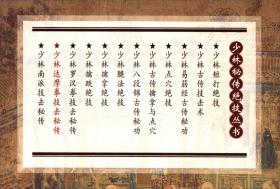 少林秘传绝技丛书
★少林短打绝技
★少林古传技击术
★少林点穴绝技
★少林易筋经古传秘功
★少林古传擒拿与点穴
★少林八段锦古传秘功
★少林腿法绝技
★少林擒拿绝技
★少林擒跌绝技
★少林罗汉拳技击秘传
★少林达摩拳技击秘传
★少林南派技击秘传